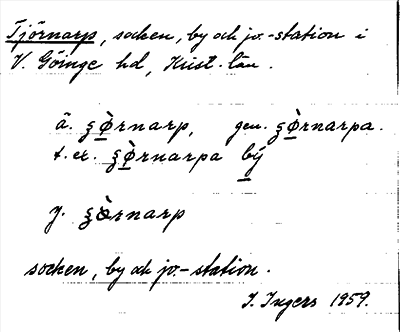 Tjörnarp, socken, by och jv.-station i
V. Göinge hd, Krist. län.
ä. ʂø̀rnarp, gen. ʂø̀rnarpa.
t. ex. ʂø̀rnarpa bý
y. ʂœ̀rnarp
socken, by och jv.-station.
I. Ingers 1959.